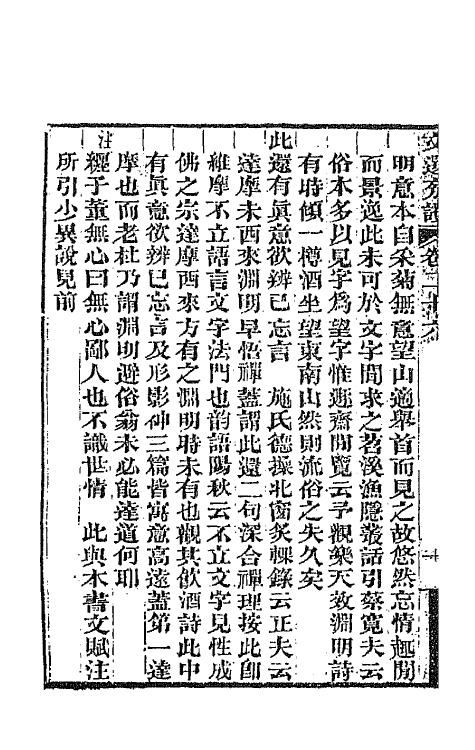 文選旁證 卷二十六
明意本自采菊無意望山適舉首而見之故悠然忘情趣閒
而景逸此未可於文字間求之苕溪漁隱叢話引蔡寬夫云
俗本多以見字爲望字惟遯齋閒覽云予觀樂天效淵明詩
有時傾一樽酒坐望東南山然則流俗之失久矣
此還有眞意欲辨已忘言 施氏德操北窗炙輠錄云正夫云
達摩未西來淵明早悟禪蓋謂此還二句深合禪理按此卽
維摩不立語言文字法門也韵語陽秋云不立文字見性成
佛之宗達摩西來方有之淵明時未有也觀其飲酒詩此中
有眞意欲辨已忘言及形影神三篇皆寓意高遠蓋第一達
摩也而老杜乃謂淵明避俗翁未必能達道何耶
注纏子董無心曰無心鄙人也不識世情 此與本書文賦注
所引少異說見前